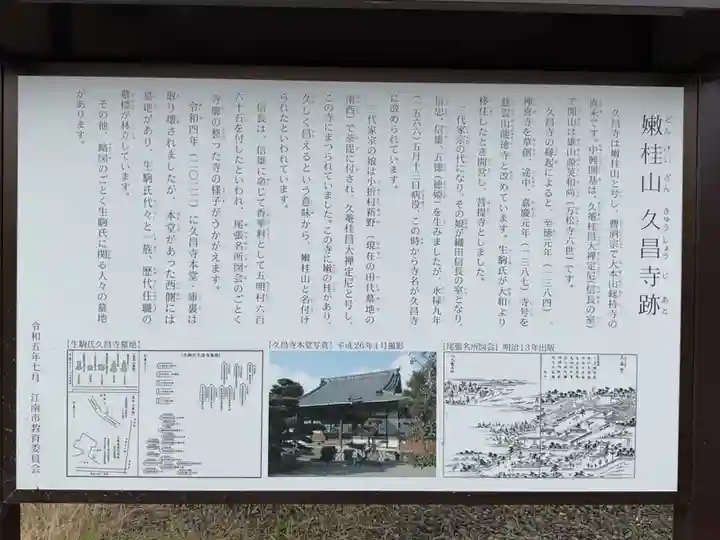 嫩桂山 久昌寺跡
どんけいざん きゅうしょうじ あと
久昌寺は嫩桂山と号し、曹洞宗で大本山総持寺の
直末です。中興開基は、久菴桂昌大禅定尼(信長の室)
で開山は雄山源英和尚(万松寺六世)です。
久昌寺の縁起によると、至徳元年(一三八四)、
禅喜寺を草創、途中、嘉慶元年(一三八七)寺号を
慈雲山龍徳寺と改めています。生駒氏が大和より
移住したとき開営し、菩提寺としました。
三代家宗の代になり、その娘が織田信長の室となり、
信忠、信雄、五徳(徳姫)を生みましたが、永禄九年
(一五六六)五月十三日病没。この時から寺名が久昌寺
に改められています。
三代家宗の娘は小折村新野(現在の田代墓地の
南西)で荼毘に付され、久菴桂昌大禅定尼と号し、
この寺にまつられていました。この寺に嫩の桂があり、
久しく昌えるという意味から、嫩桂山と名付け
られたといわれています。
信長は、信雄に命じて香華料として五明村六百
六十石を付したといわれ、尾張名所図会のごとく
寺廓の整った寺の様子がうかがえます。
令和四年(二〇二二)に久昌寺本堂・庫裏は
取り壊されましたが、本堂があった西側には
墓地があり、生駒氏代々と一族、歴代住職の
墓標が林立しています。
その他、略図のごとく生駒氏に関る人々の墓地
があります。
令和五年七月 江南市教育委員会
【尾張名所図会】明治13年出版
【久昌寺本堂写真】平成26年4月撮影
【生駒氏久昌寺墓地】